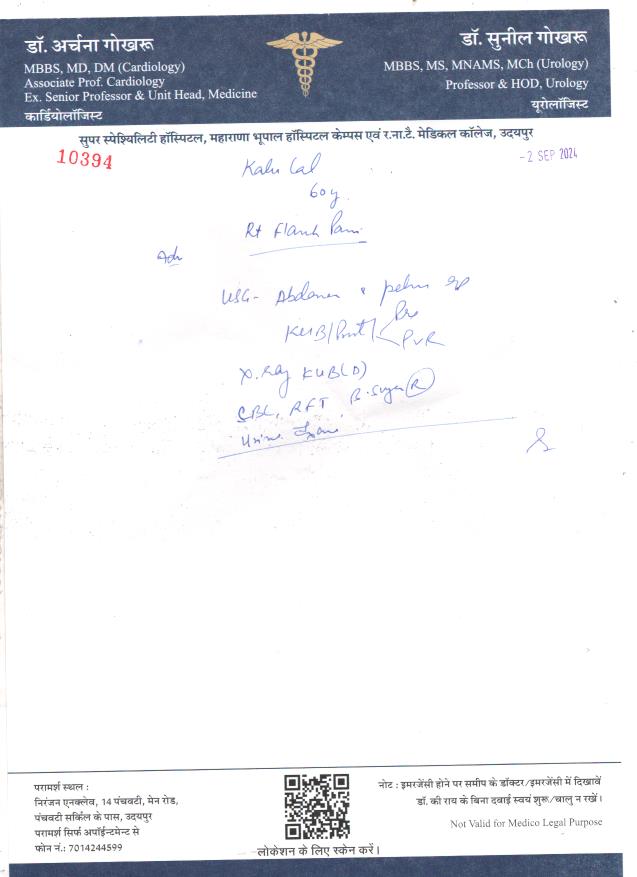 डॉ. अर्चना गोखरू
MBBS, MD, DM (Cardiology)
Associate Prof. Cardiology
Ex. Senior Professor & Unit Head, Medicine
कार्डियोलॉजिस्ट
डॉ. सुनील गोखरू
MBBS, MS, MNAMS, MCh (Urology)
Professor & HOD, Urology
यूरोलॉजिस्ट
सुपर स्पेश्यिलिटी हॉस्पिटल, महाराणा भूपाल हॉस्पिटल केम्पस एवं र.ना.टै. मेडिकल कॉलेज, उदयपुर
10394
-2 SEP 2024
Kalu Lal
60y
Rt Flank Pain
Adv
USG- Abdomen & pelvis
KUB/Prost/ Pre
PVR
X.Ray KUB(D)
CBC, RFT, B. Sugar (R)
Urine
परामर्श स्थल :
निरंजन एनक्लेव, 14 पंचवटी, मेन रोड,
पंचवटी सर्किल के पास, उदयपुर
परामर्श सिर्फ अपॉईन्टमेन्ट से
फोन नं.: 7014244599
लोकेशन के लिए स्केन करें।
नोट : इमरजेंसी होने पर समीप के डॉक्टर/इमरजेंसी में दिखावें
डॉ. की राय के बिना दवाई स्वयं शुरू/चालु न रखें।
Not Valid for Medico Legal Purpose